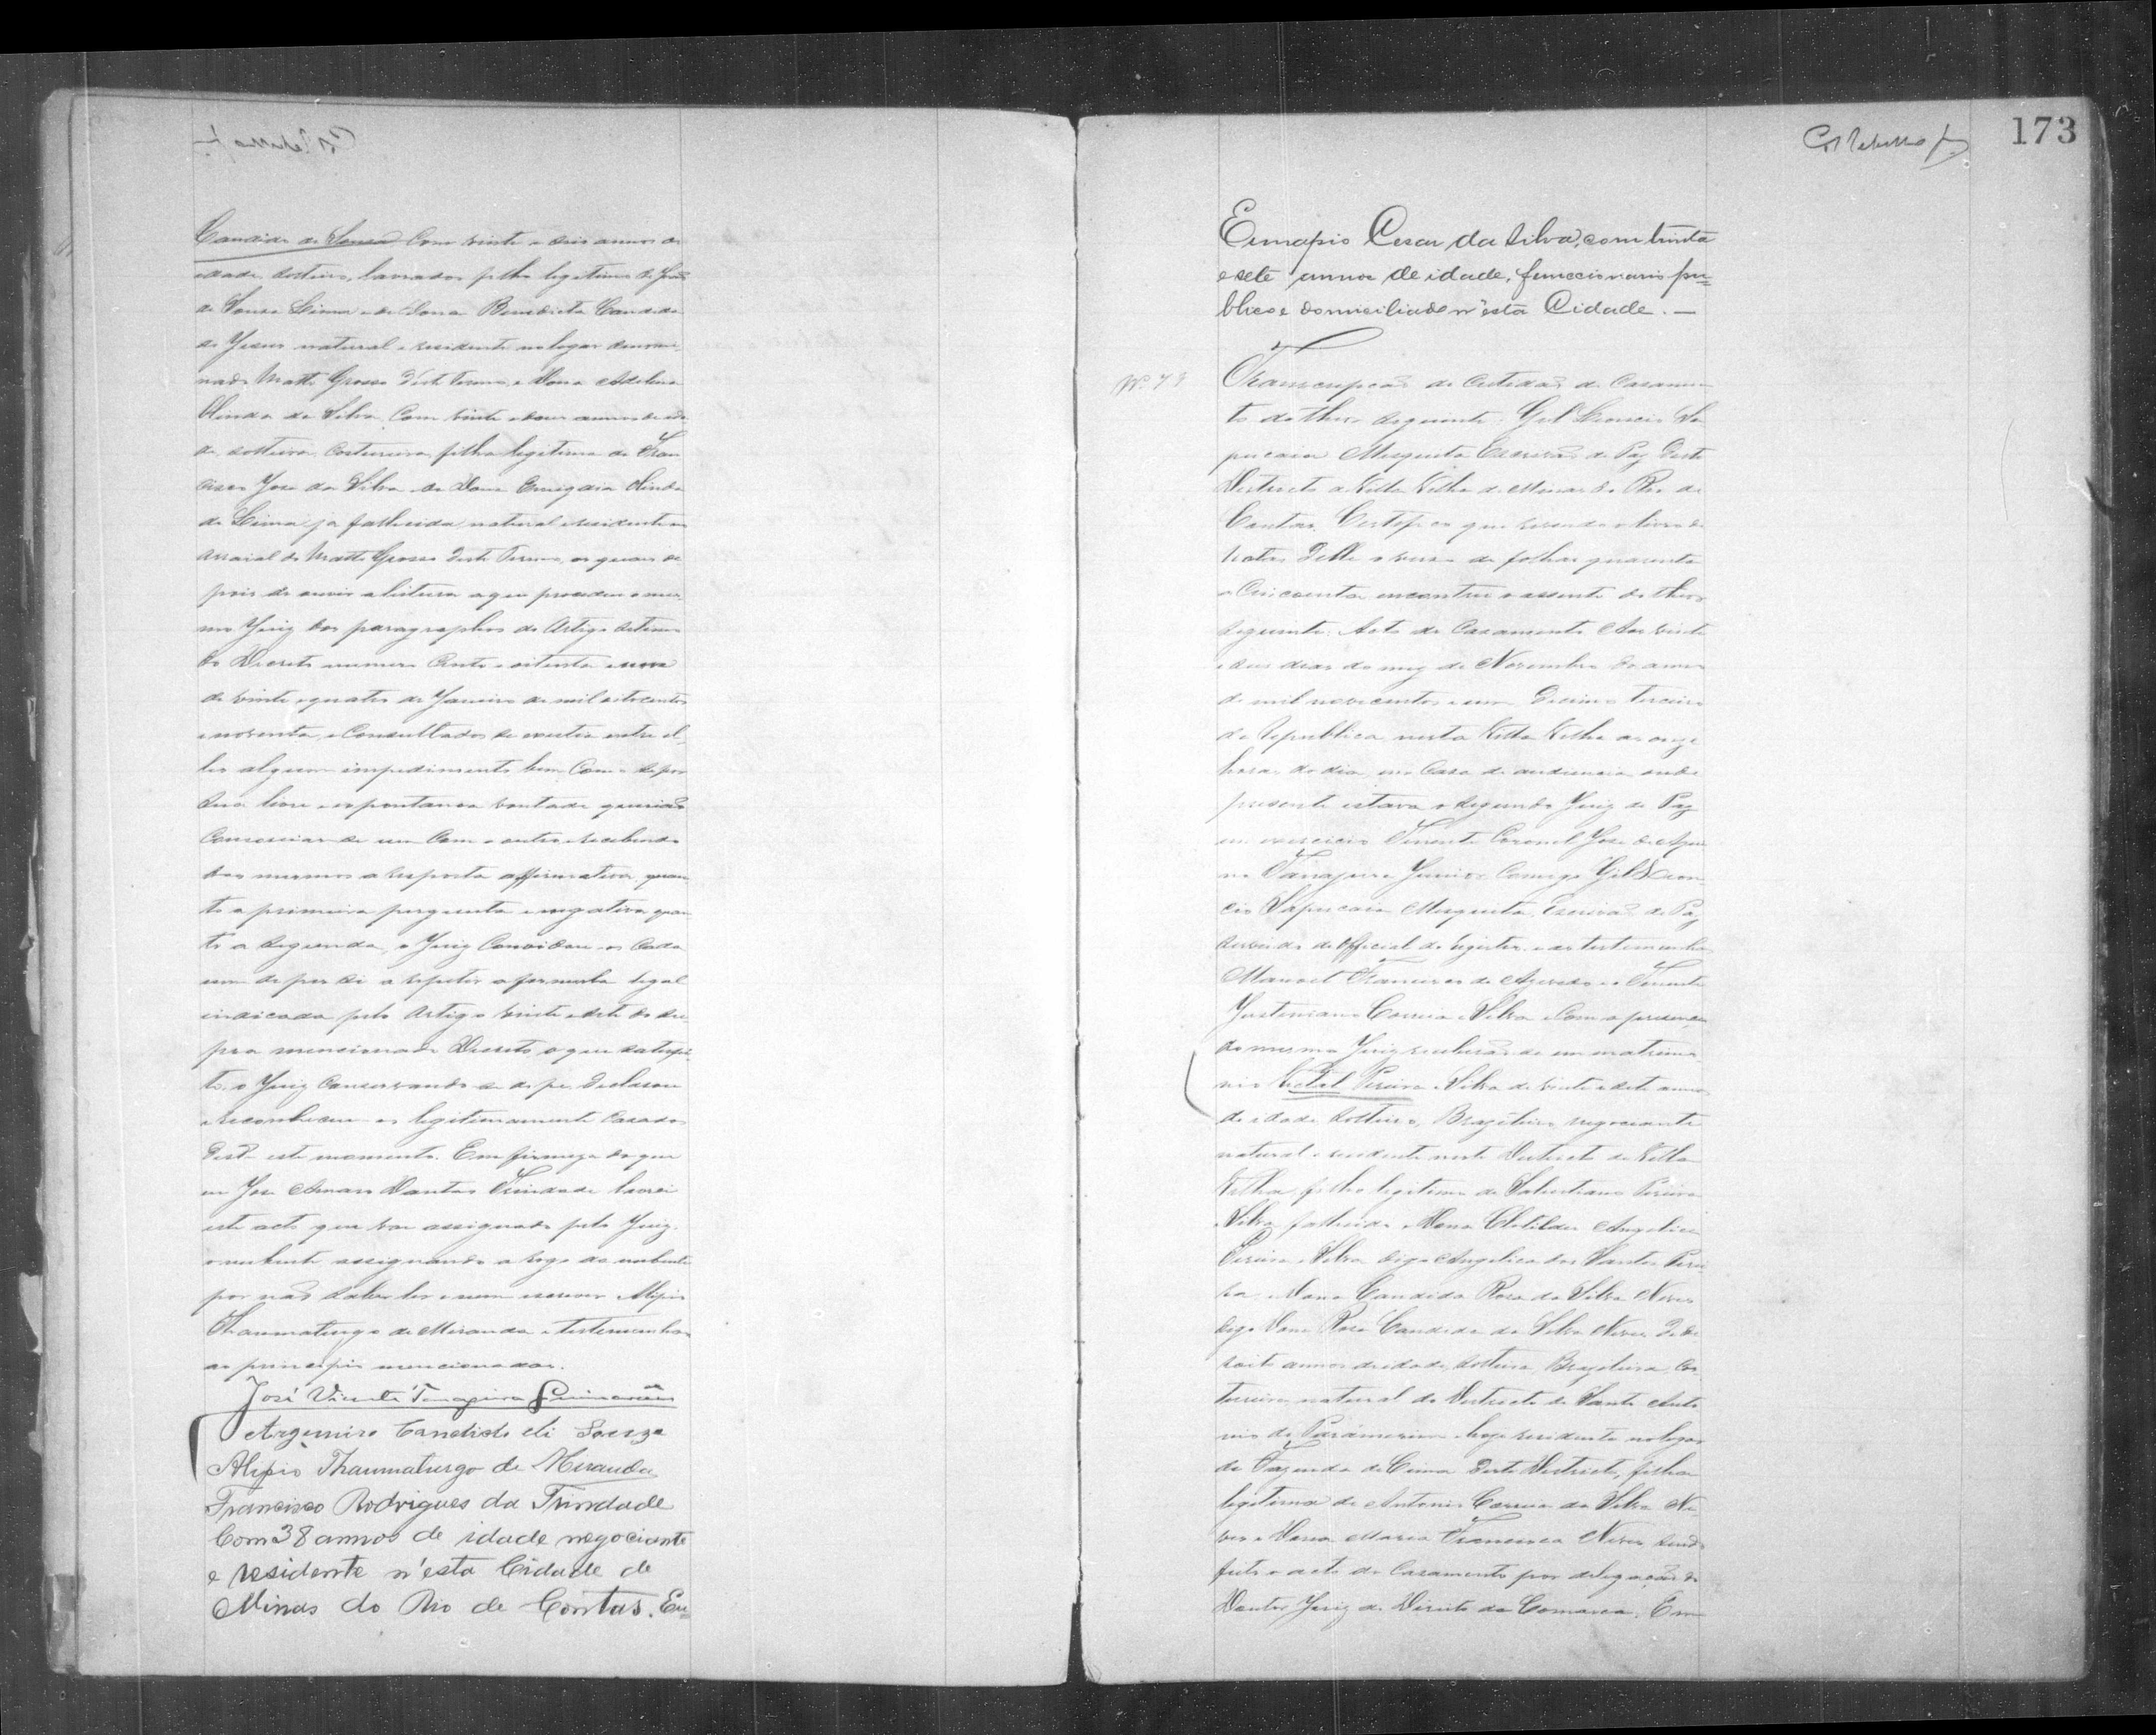 Candido de Souza com vinte e seis annos de
idade, solteiro, lavrador filho legitimo de João
de Souza Lima e de Dona Benedicta Candida
de Jesus natural e residente no logar denomi-
nado Matto Grosso deste Termo, e Dona Adelina
Olinda da Silva com vinte e dous annos de ida-
de, solteira, costureira, filha legitima de Fran
cisco José da Silva e de Dona Emigdia Olinda
de Lima já fallecida natural e residente no
arraial do Matto Grosso deste Termo, os quaes de
pois de ouvir a leitura a que procedeu o mes-
mo Juiz dos paragraphos do Artigo setimo
do Decreto numero cento e oitenta e um
de vinte e quatro de Janeiro de mil oitocentos
e noventa, e consultados se existia entre el-
les algum impedimento bem como se por
sua livre e espontanea vontade querião
consorciar-se um com o outro e recebendo
dos mesmos a resposta affirmativa quan-
to a primeira pergunta e negativa quan
to a segunda, o Juiz convidou-os cada
um de per si a repetir a formula legal
indicada pelo Artigo vinte e sete do su-
pra mencionado Decreto o que satisfei-
to, o Juiz conservando-se de pé declarou
e reconheceu-os legitimamente casados
desde este momento. Em firmeza do que
eu José Amaro Dantas Trindade lavrei
este acto que vae assignado pelo Juiz,
o nubente assignando a rogo da nubente
por não saber ler e nem escrever Alipio
Thaumaturgo de Miranda e testemunhas
ao principio mencionadas.
José Vicente Tanajura Guimarães
Argemiro Candido de Souza
Alipio Thaumaturgo de Miranda
Francisco Rodrigues da Trindade
Com 38 annos de idade negociante
e residente n'esta Cidade de
Minas do Rio de Contas. Eu=
173
Eunapio Cesar da Silva, com trinta
e sete annos de idade, funccionario pu=
blico e domiciliado n'esta Cidade. —
Nº 73
Transcripção de Certidão de Casamen-
to do theor seguinte: Gil Leoncio Sa
pucaia Mesquita Escrivão de Paz deste
Districto da Villa Velha de Minas do Rio de
Contas. Certifico que revendo o livro de
notas delle o verso de folhas quarenta
a cincoenta encontrei o assento do theor
seguinte: Acto de Casamento Aos vinte
e seis dias do mez de Novembro do anno
de mil novecentos e um Decimo terceiro
da Republica nesta Villa Velha as onze
horas do dia em casa de audiencia onde
presente estava o segundo Juiz de Paz
em exercicio Tenente Coronel José de Aqui
no Tanajura Junior Comigo Gil Leon-
cio Sapucaia Mesquita, Escrivão de Paz
servindo de Official do registro e as testemunhas
Manoel Francisco de Azevedo e o Tenente
Justiniano Correia e Silva e com a presença
do mesmo Juiz receberão-se em matrimo
nio Vital Pereira e Silva de vinte e sete annos
de idade solteiro, Brazileiro negociante
natural e residente neste Districto da Villa
Velha, filho legitimo de Salustiano Pereira
e Silva fallecido e Dona Clotildes Angelica
Pereira e Silva digo Angelica dos Santos Perei
ra, e Dona Candida Rosa da Silva Neves
digo Dona Rosa Candida da Silva Neves, de de
zoito annos de idade, solteira, Brazileira, cos
tureira natural do Districto de Santo Anto
nio de Paramerim e hoje residente no logar
da Fazenda de Cima deste Districto, filha
legitima de Antonio Correia da Silva Ne-
ves e Dona Maria Francisca Neves sendo
feito o acto do casamento por delegação do
Doutor Juiz de Direito da Comarca. Em